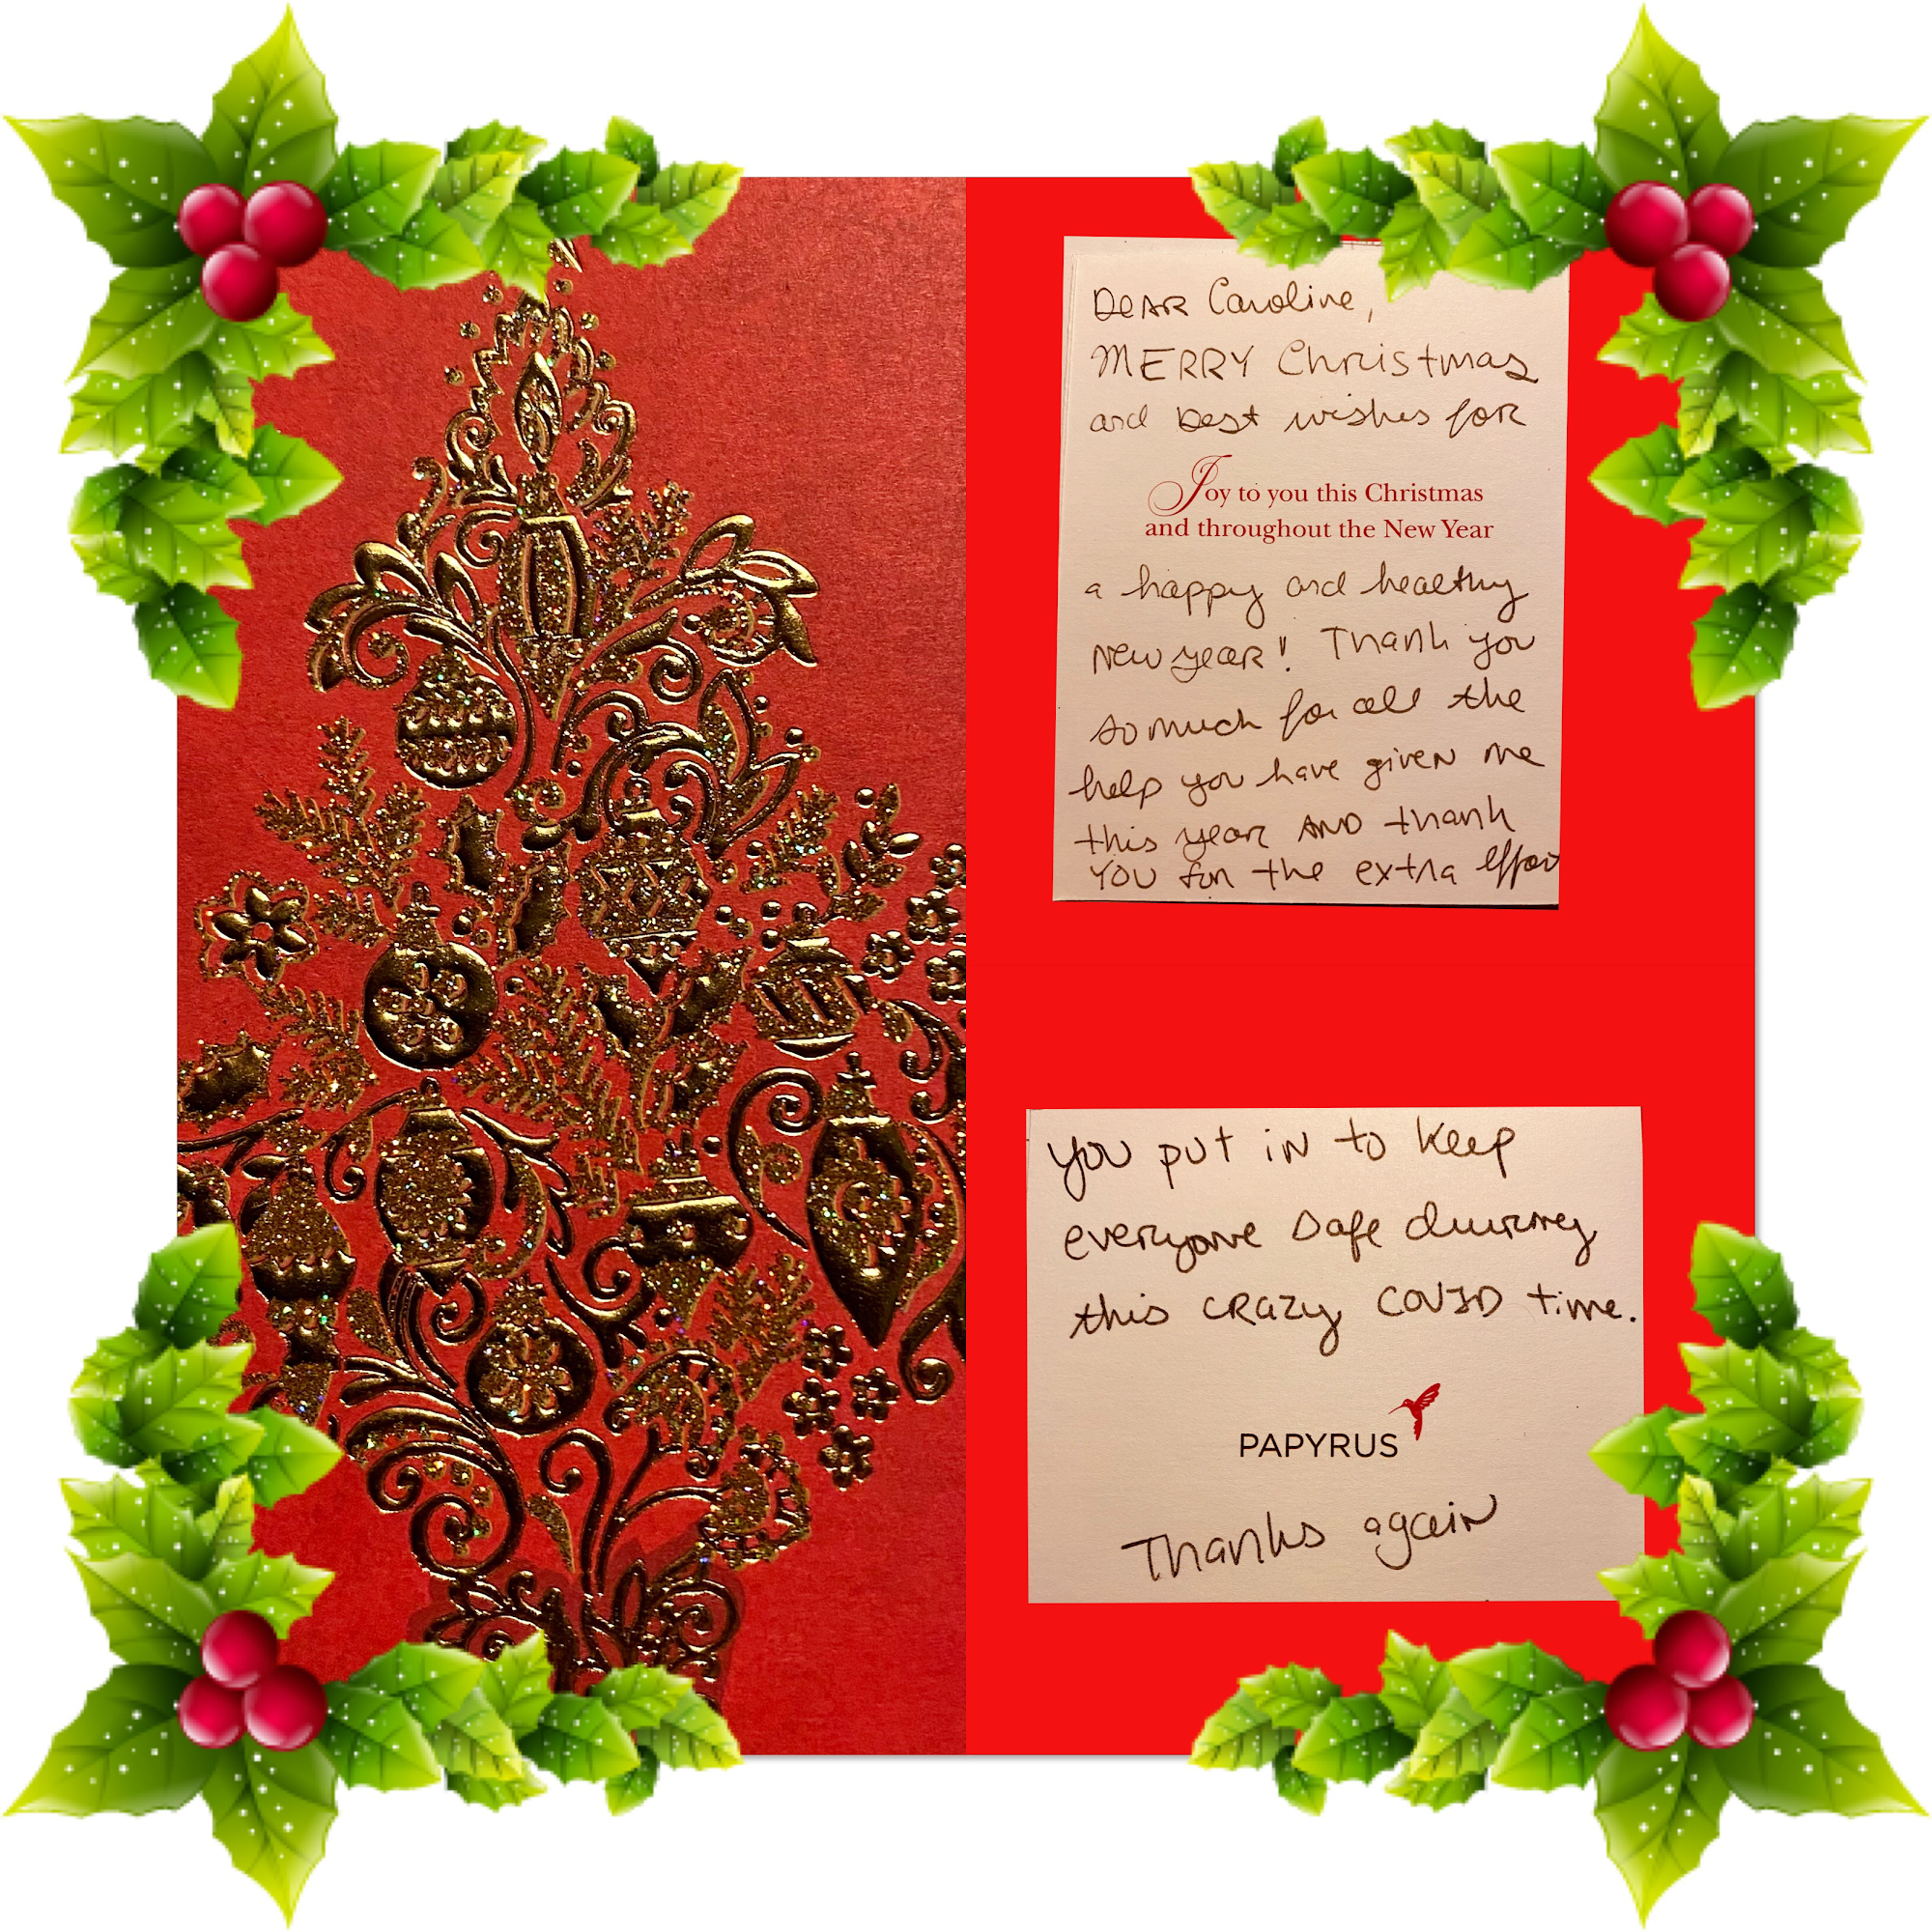 Dear Caroline,
MERRY Christmas
and best wishes for
Joy to you this Christmas
and throughout the New Year
a happy and healthy
New year! Thank you
so much for all the
help you have given me
this year AND thank
you for the extra effort
you put in to keep
everyone safe during
this crazy COVID time.
PAPYRUS
Thanks again